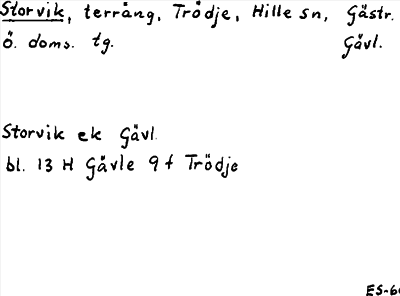 Storvik, terräng, Trödje, Hille sn, Gästr.
Ö. doms. tg. Gävl.
Storvik ek Gävl.
bl. 13 H Gävle 9 f Trödje